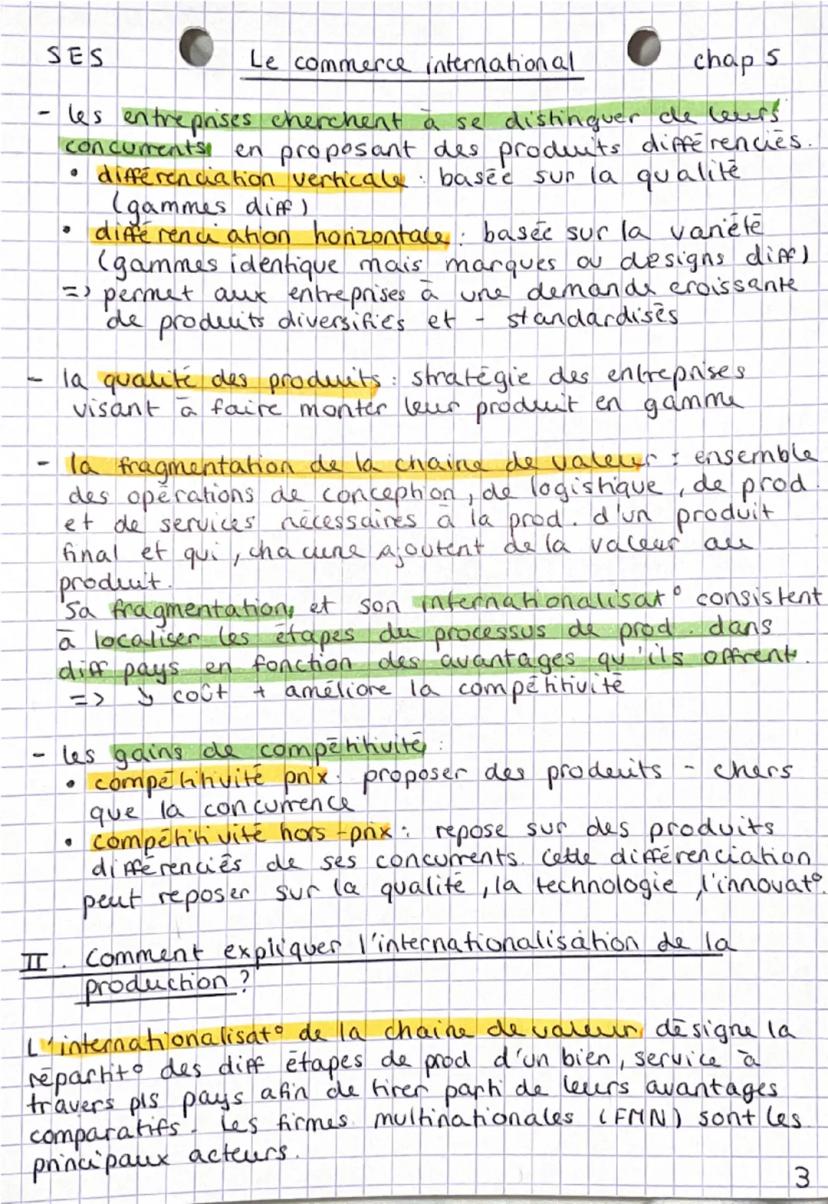 SES Le commerce international chap 5
- les entreprises cherchent à se distinguer de leurs
concurrents en proposant des produits différenciés.
• différenciation verticale : basée sur la qualité
(gammes diff)
• différenciation horizontale : basée sur la variété
(gammes identique mais marques ou designs diff)
=> permet aux entreprises à une demande croissante
de produits diversifiés et - standardisés
- la qualité des produits : stratégie des entreprises
visant à faire monter leur produit en gamme
- la fragmentation de la chaine de valeur : ensemble
des opérations de conception, de logistique, de prod.
et de services nécessaires à la prod. d'un produit
final et qui, chacune ajoutent de la valeur au
produit.
Sa fragmentation et son internationalisat° consistent
à localiser les étapes du processus de prod. dans
diff pays en fonction des avantages qu'ils offrent.
=> ↘ coût + améliore la compétitivité
- les gains de compétitivité :
• compétitivité prix : proposer des produits - chers
que la concurrence
• compétitivité hors-prix : repose sur des produits
différenciés de ses concurrents. Cette différenciation
peut reposer sur la qualité, la technologie, l'innovat°.
II. Comment expliquer l'internationalisation de la
production ?
L'internationalisat° de la chaine de valeur désigne la
répartit° des diff étapes de prod d'un bien, service à
travers pls pays afin de tirer parti de leurs avantages
comparatifs. Les firmes multinationales (FMN) sont les
principaux acteurs.
3